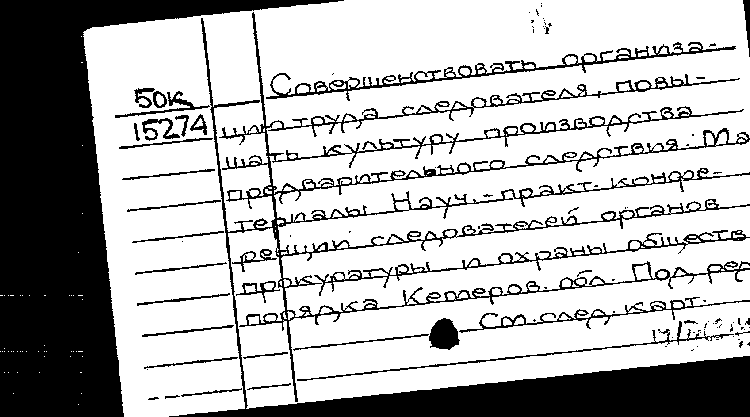 50к
15274
Совершенствовать организа-
цию труда следователя, повы-
шать культуру производства
предварительного следствия: Ма
териалы Науч.-практ. конфе-
ренции следователей органов
прокуратуры и охраны обществ
порядка Кемеров. обл. Под ред
См. след. карт.